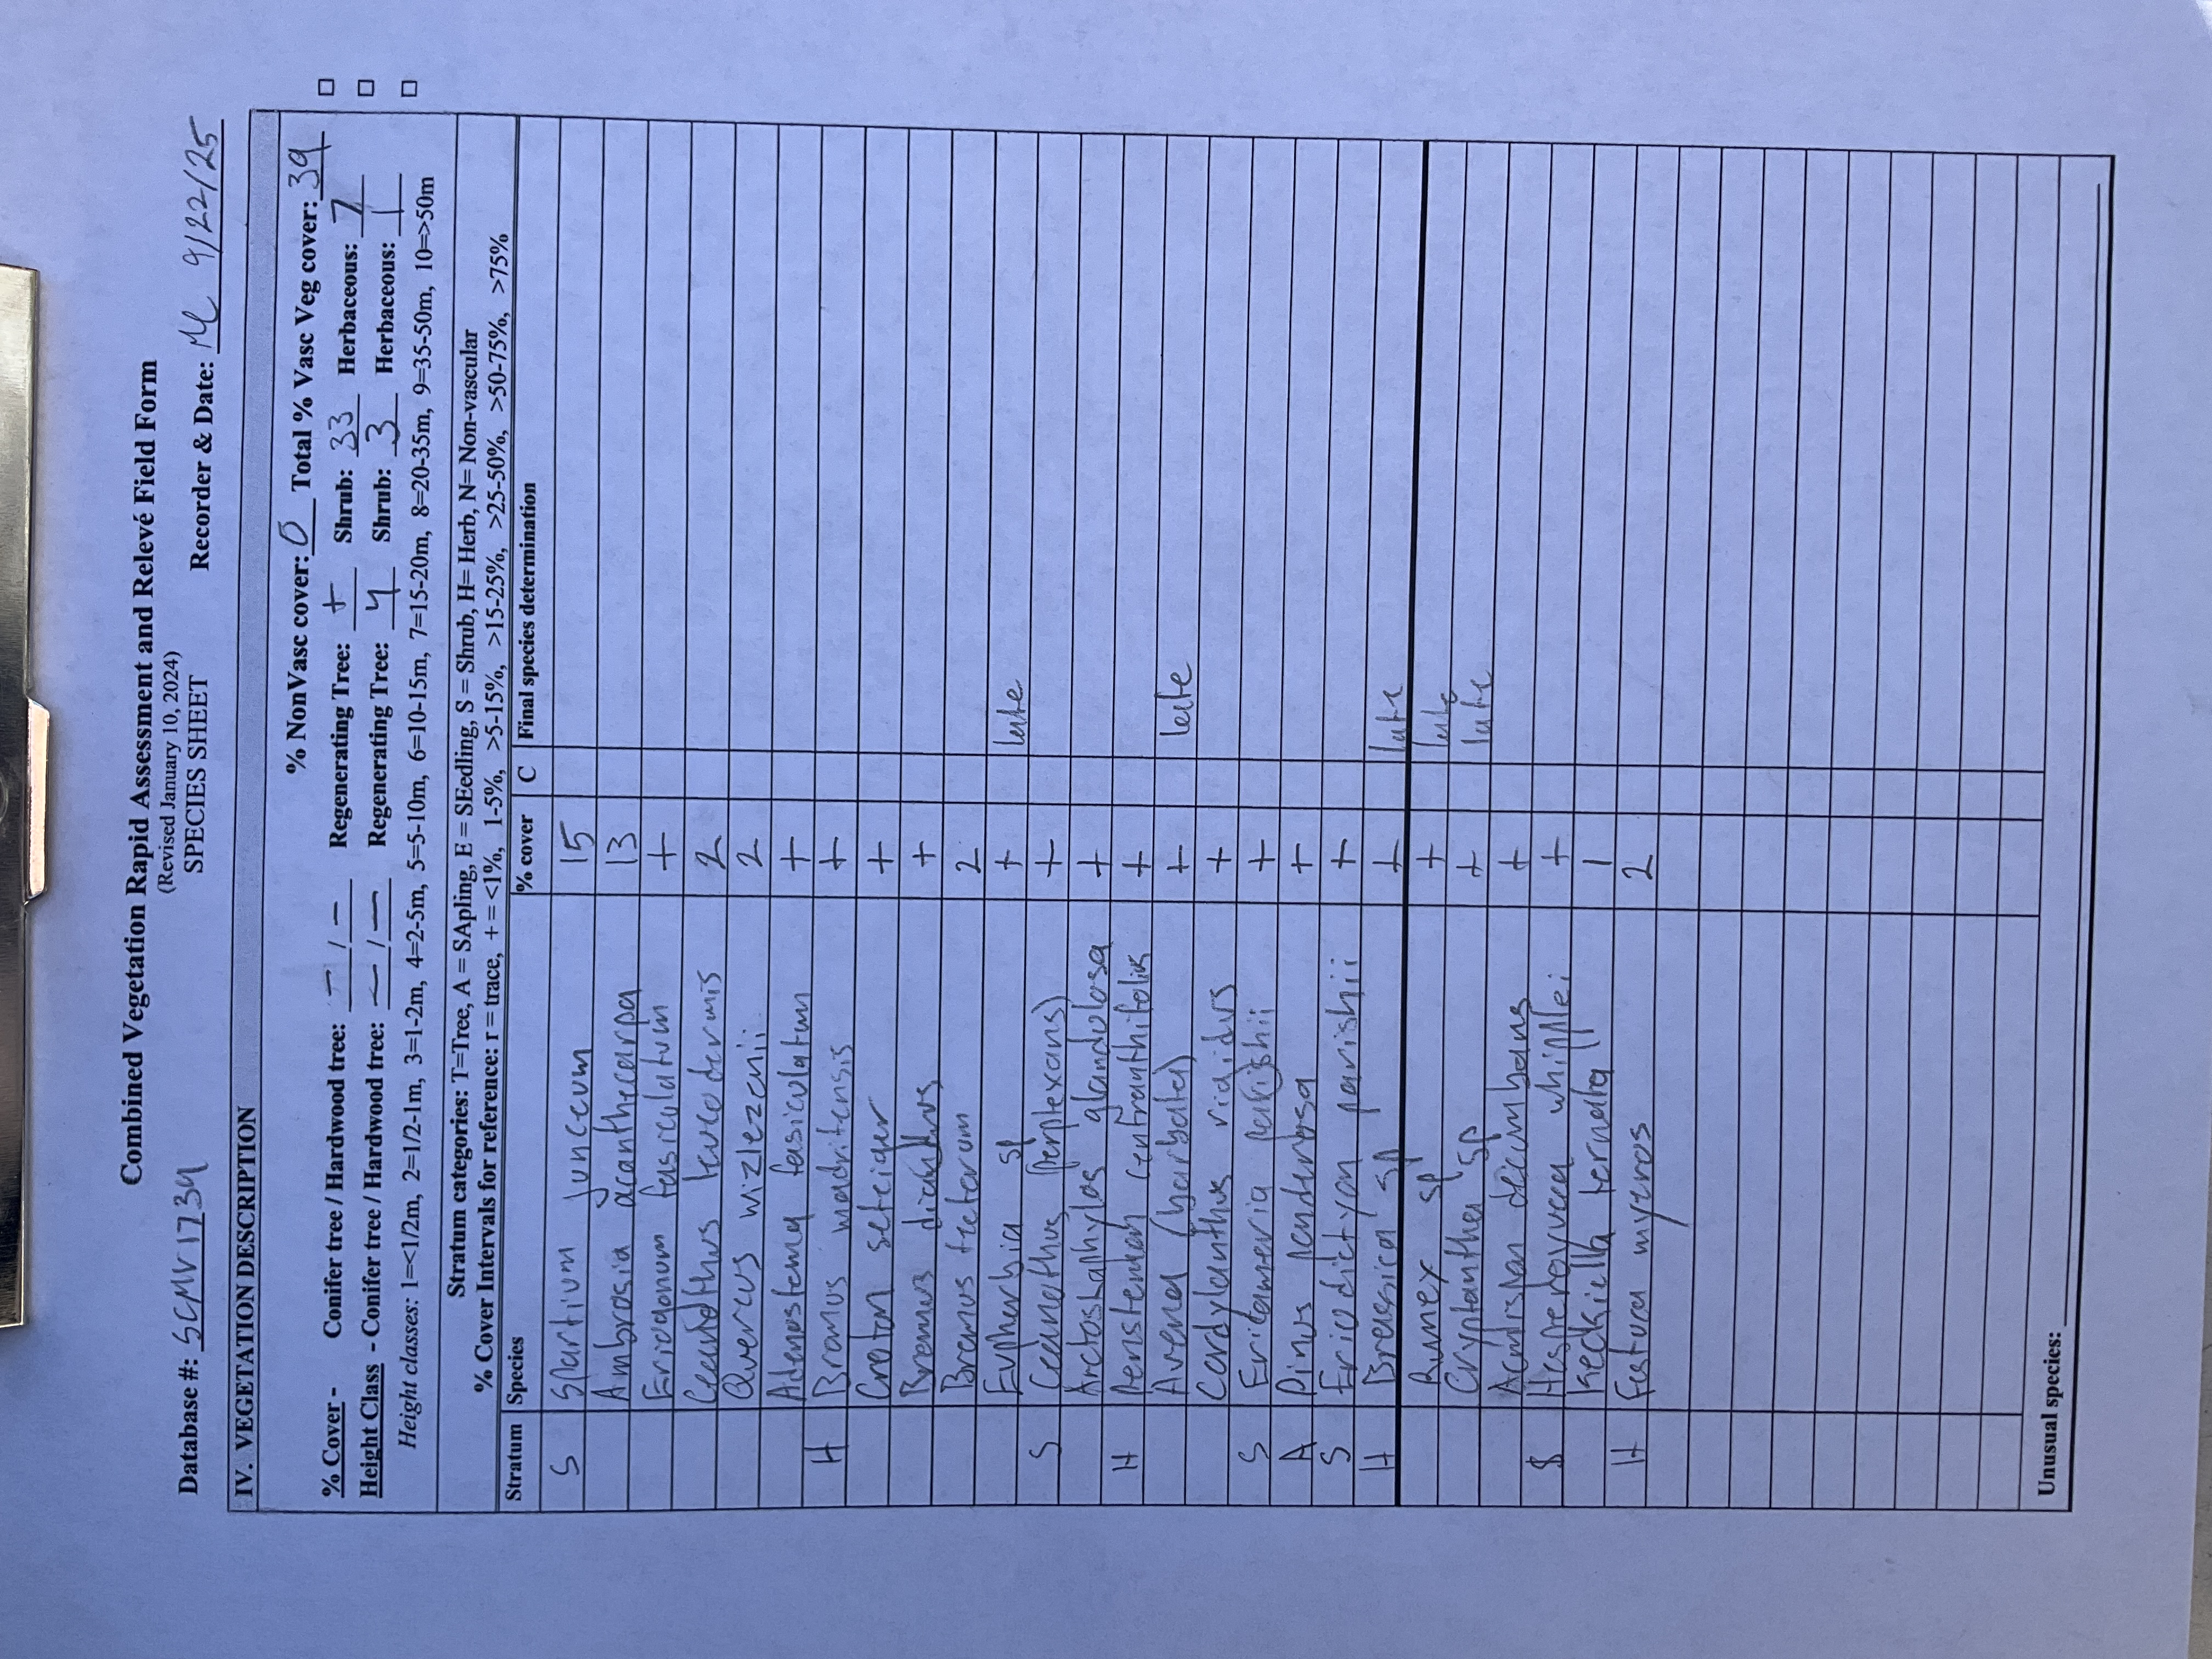 Combined Vegetation Rapid Assessment and Relevé Field Form
(Revised January 10, 2024)
SPECIES SHEET
Database #: SCMV1734 Recorder & Date: ML 9/22/25
IV. VEGETATION DESCRIPTION
% NonVasc cover: 0 Total % Vasc Veg cover: 39
% Cover - Conifer tree / Hardwood tree: - / - Regenerating Tree: + Shrub: 33 Herbaceous: 7 □
Height Class - Conifer tree / Hardwood tree: - / - Regenerating Tree: 4 Shrub: 3 Herbaceous: 1 □
Height classes: 1=<1/2m, 2=1/2-1m, 3=1-2m, 4=2-5m, 5=5-10m, 6=10-15m, 7=15-20m, 8=20-35m, 9=35-50m, 10=>50m □
Stratum categories: T=Tree, A = SApling, E = SEedling, S = Shrub, H= Herb, N= Non-vascular
% Cover Intervals for reference: r = trace, + = <1%, 1-5%, >5-15%, >15-25%, >25-50%, >50-75%, >75%
Stratum Species % cover C Final species determination
S Spartium junceum 15
Ambrosia acanthocarpa 13
Eriogonum fasiculatum +
Ceanothus leucodermis 2
Quercus wizlezenii 2
Adenostema fasiculatum +
H Bromus madritensis +
Croton setiger +
Bromus diandrus +
Bromus tectorum 2
Euphorbia sp + late
S Ceanothus (perplexans) +
Arctostaphylos glandulosa +
H Penstemon centranthifolius +
Avena (barbata) + late
Cordylanthus rigidus +
S Ericameria parishii +
A Pinus ponderosa +
S Eriodictyon parishii +
H Brassica sp + late
Rumex sp + late
Cryptantha sp + late
Acmispon decumbens +
S Hesperoyucca whipplei +
Keckiella ternata 1
H Festuca myuros 2
Unusual species: